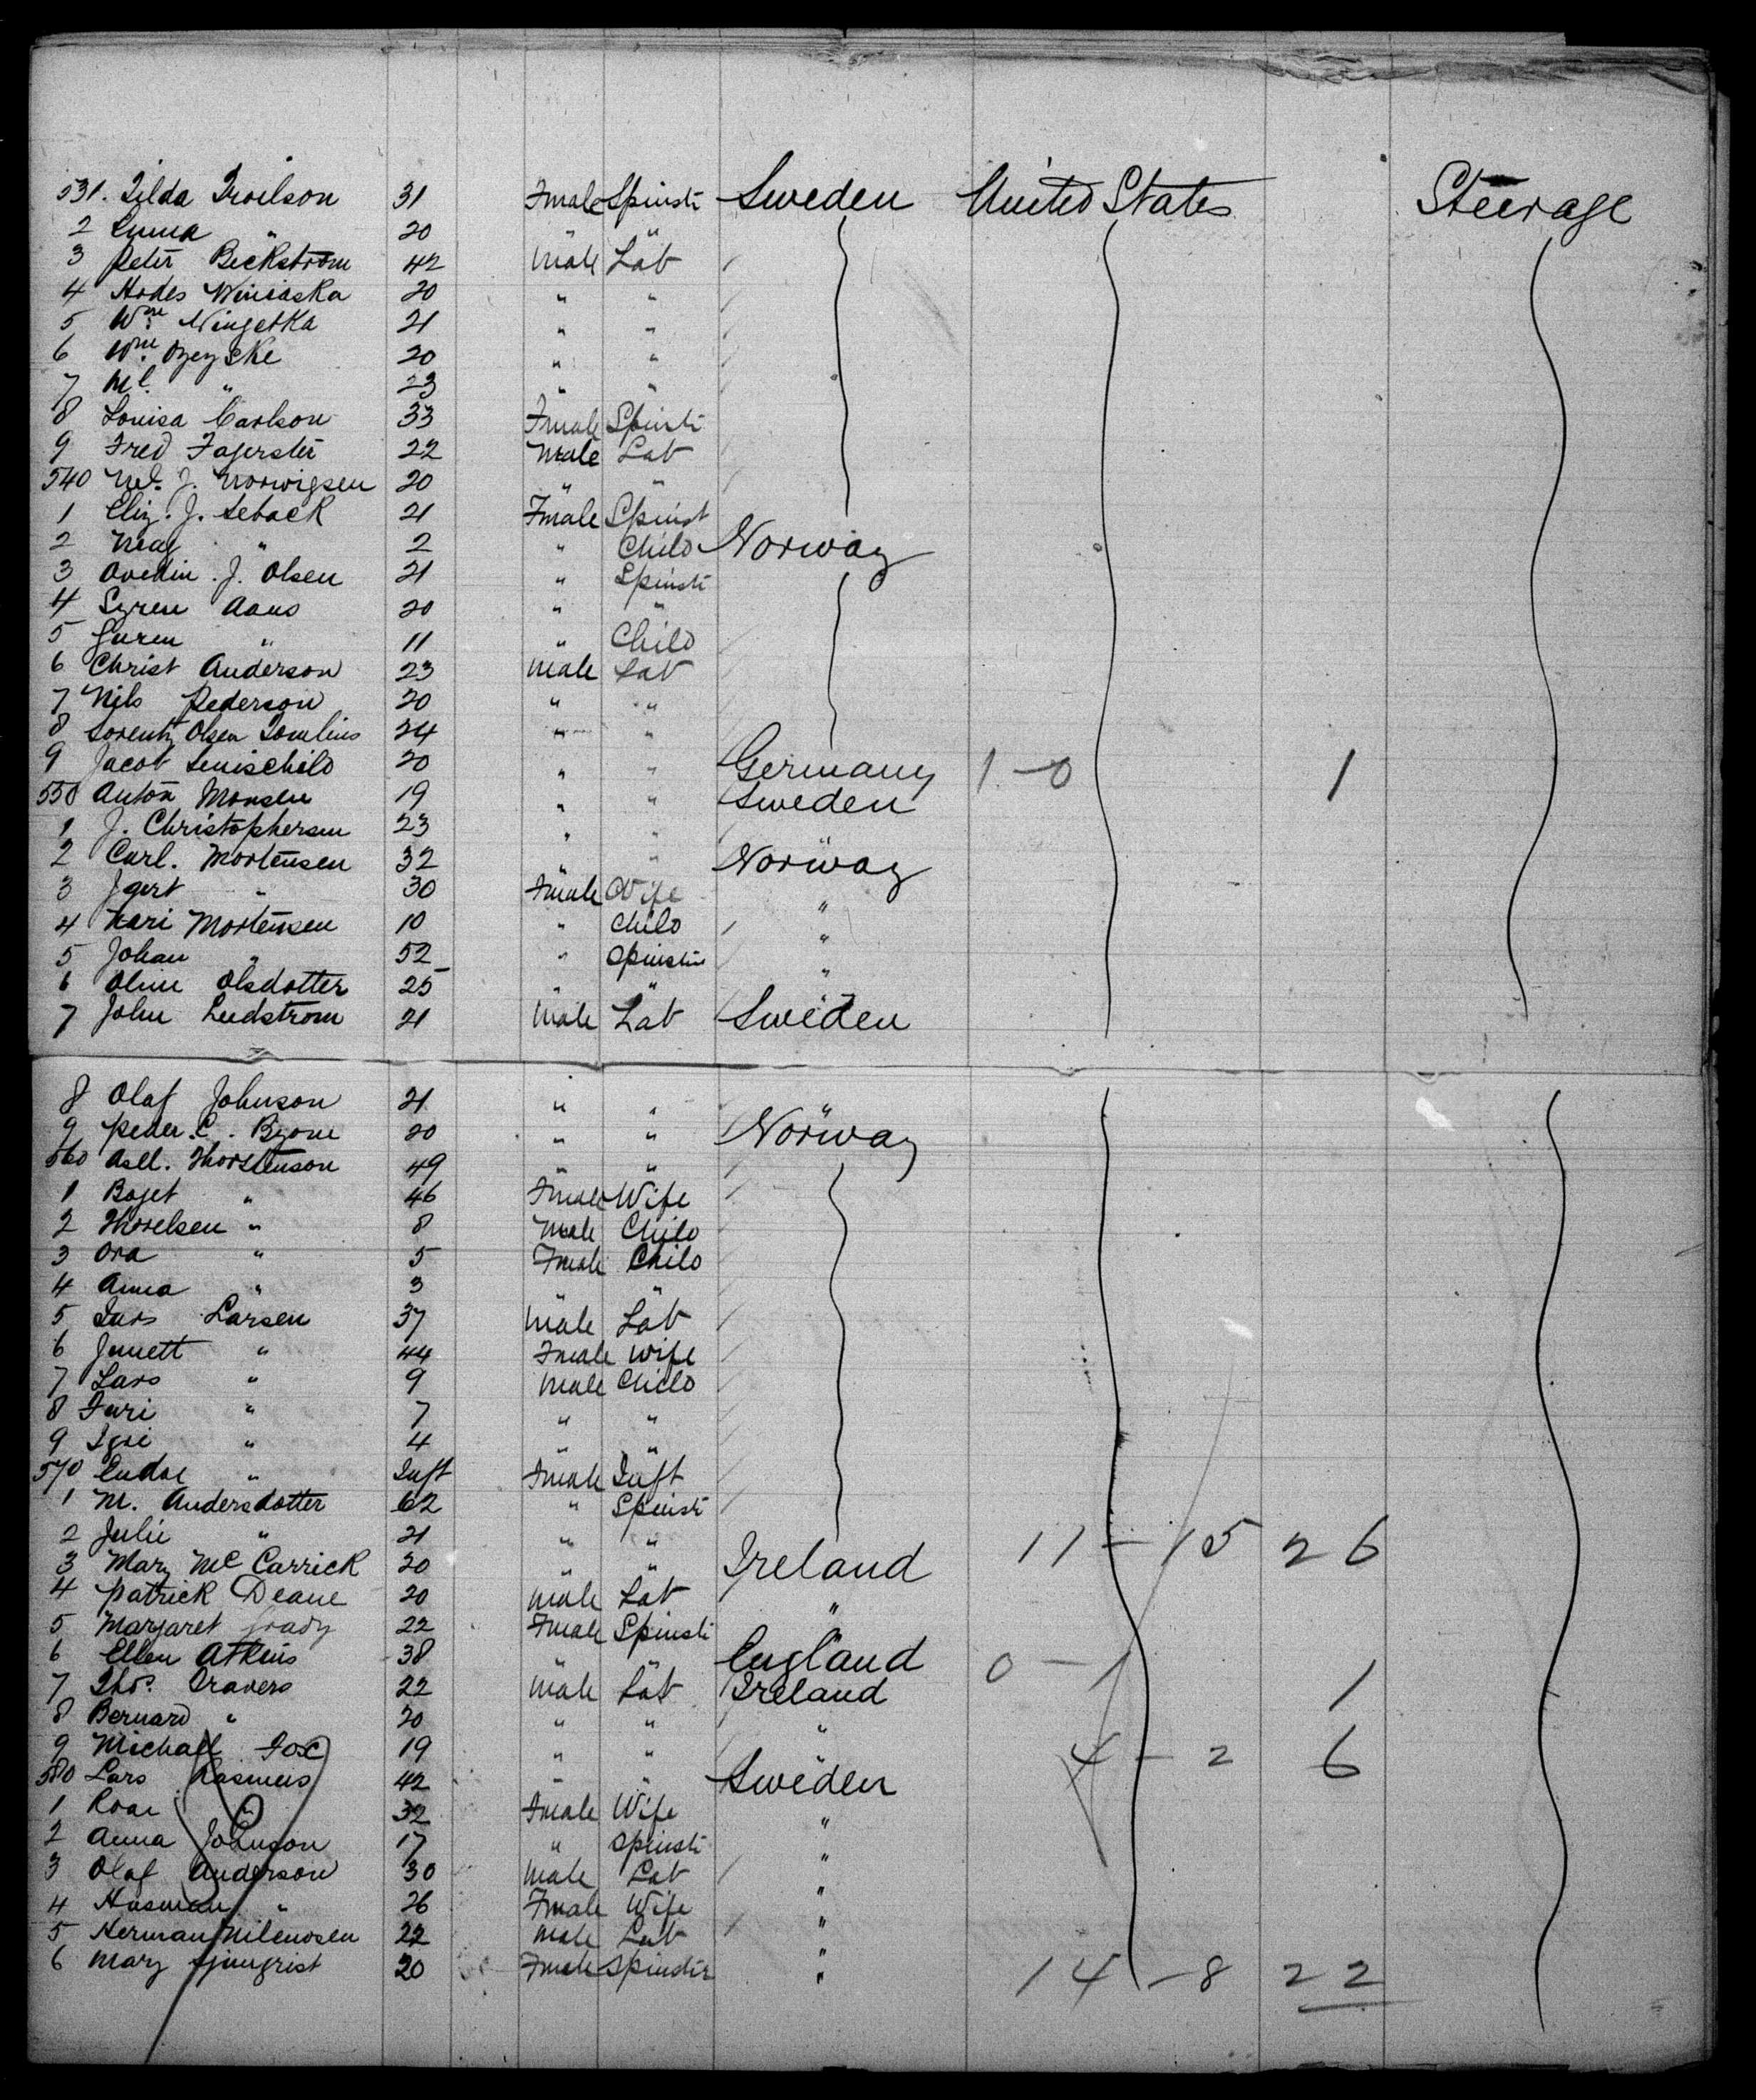 531. Tilda Troilson 31 Fmale Spinstr Sweden United States Steerage
2 Emma " 20 " "
3 Peter Beckstrom 42 Male Lab
4 20 " "
5 Wm. 21 " "
6 Wm. 20 " "
7 " 23 " "
8 Louisa Carlson 33 Fmale Spinstr
9 Fred 22 Male Lab
540 J. Norwigsen 20 " "
1 Eliz. J. Seback 21 Fmale Spinst
2 " 2 " Child Norway
3 J. Olsen 21 " Spinstr
4 20 " "
5 " 11 " Child
6 Christ Anderson 23 Male Lab
7 Nils Pederson 20 " "
8 Lorentz Olsen 24 " "
9 Jacob 20 " " Germany 1 - 0 1
550 Anton Monsen 19 " " Sweden
1 J. Christophersen 23 " " "
2 Carl. Mortensen 32 " " Norway
3 " 30 Fmale Wife "
4 Kari Mortensen 10 " Child "
5 Johan " 52 " Spinstr "
6 Oline Olsdotter 25 " " "
7 John Lindstrom 21 Male Lab Sweden
8 Olaf Johnson 21 " " "
9 Peder C. 20 " " Norway
560 Thorstenson 49 " "
1 " 46 Fmale Wife
2 " 8 Male Child
3 " 5 Fmale Child
4 Anna " 3 " "
5 Lars Larsen 37 Male Lab
6 " 44 Fmale Wife
7 Lars " 9 Male Child
8 " 7 " "
9 " 4 " "
570 " Inft Fmale Inft
1 M. Andersdotter 62 " Spinstr
2 Julie " 21 " "
3 Mary McCarrick 20 " " Ireland 11 - 15 26
4 Patrick Deane 20 Male Lab "
5 Margaret Grady 22 Fmale Spinstr "
6 Ellen Atkins 38 " " England 0 - 1 1
7 Thos. Travers 22 Male Lab Ireland
8 Bernard " 20 " " "
9 Michael Fox 19 " " " 4 - 2 6
580 Lars Rasmus 42 " " Sweden
1 " 32 Fmale Wife "
2 Anna Johnson 17 " Spinstr "
3 Olaf Anderson 30 Male Lab "
4 " 26 Fmale Wife "
5 Herman 22 Male Lab "
6 Mary 20 Fmale Spinstr " 14 - 8 22